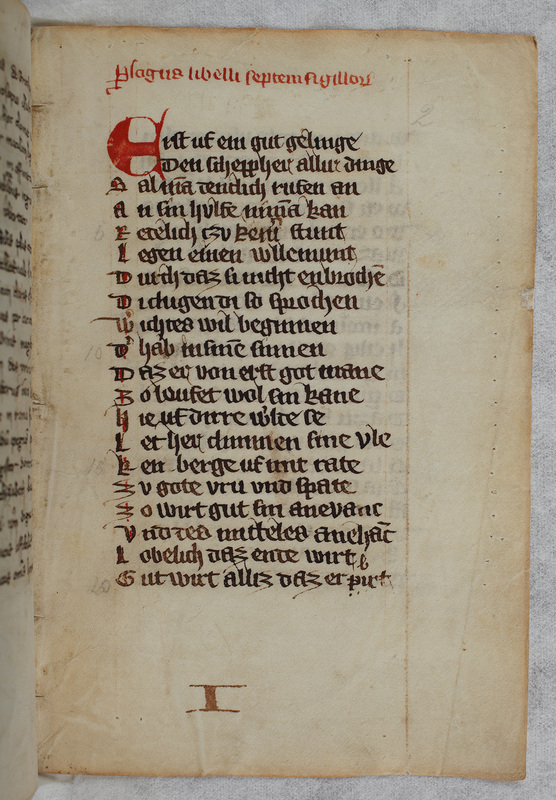 Plogus libelli septem sigillorum
2
Eist uf ein gut gelinge
Den scheppher allir dinge
Sal mā tenclich rufen an
An sin hulfe nimā kan
Retelich czu keinr stunt
Legen einen wllemunt
Durch daz si nicht enbrochē
Di tugen di so sprochen
Wichtes wil beginnen
Dr hab in sinē sinnen
Daz er von erst got mane
So loufet wol sin kane
Hie uf dirre werlte se
Let her dinnen sine vle
Ken berge uf mit rate
Zu gote vru vnd spate
So wirt gut sin anevanc
Vnd des mitteles anehāc
Lobelich daz ente wirt
Gut wirt alliz daz er pirt
5
10
15
20
I